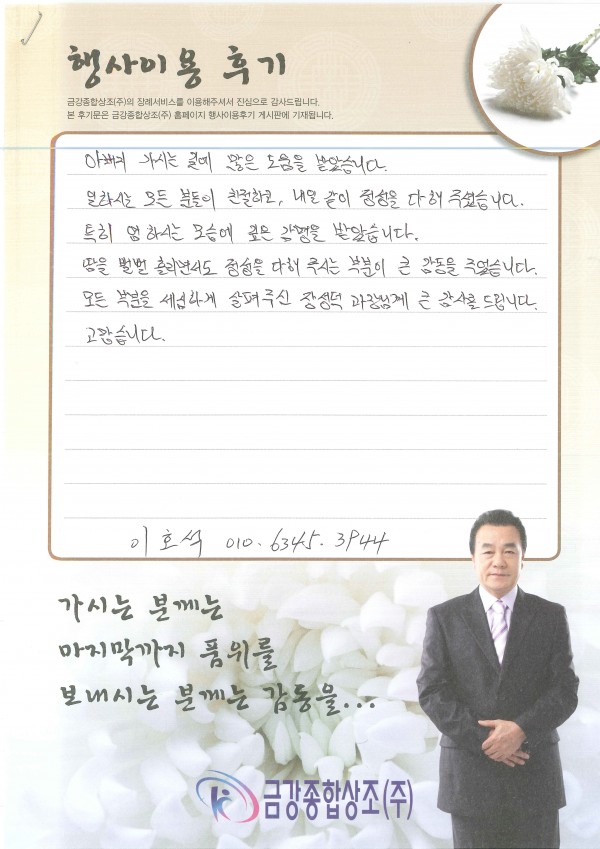 행사이용 후기
금강종합상조(주)의 장례서비스를 이용해주셔서 진심으로 감사드립니다.
본 후기문은 금강종합상조(주) 홈페이지 행사이용후기 게시판에 기재됩니다.
아버지 가시는 길에 많은 도움을 받았습니다.
일하시는 모든 분들이 친절하고, 내일 같이 정성을 다해 주셨습니다.
특히 염하시는 모습에 깊은 감명을 받았습니다.
땀을 뻘뻘 흘리면서도 정성을 다해 주시는 부분이 큰 감동을 주었습니다.
모든 부분을 세심하게 살펴주신 장성덕 과장님께 큰 감사를 드립니다.
고맙습니다.
이호석 010. 6345. 3944
가시는 분께는
마지막까지 품위를
보내시는 분께는 감동을...
금강종합상조(주)